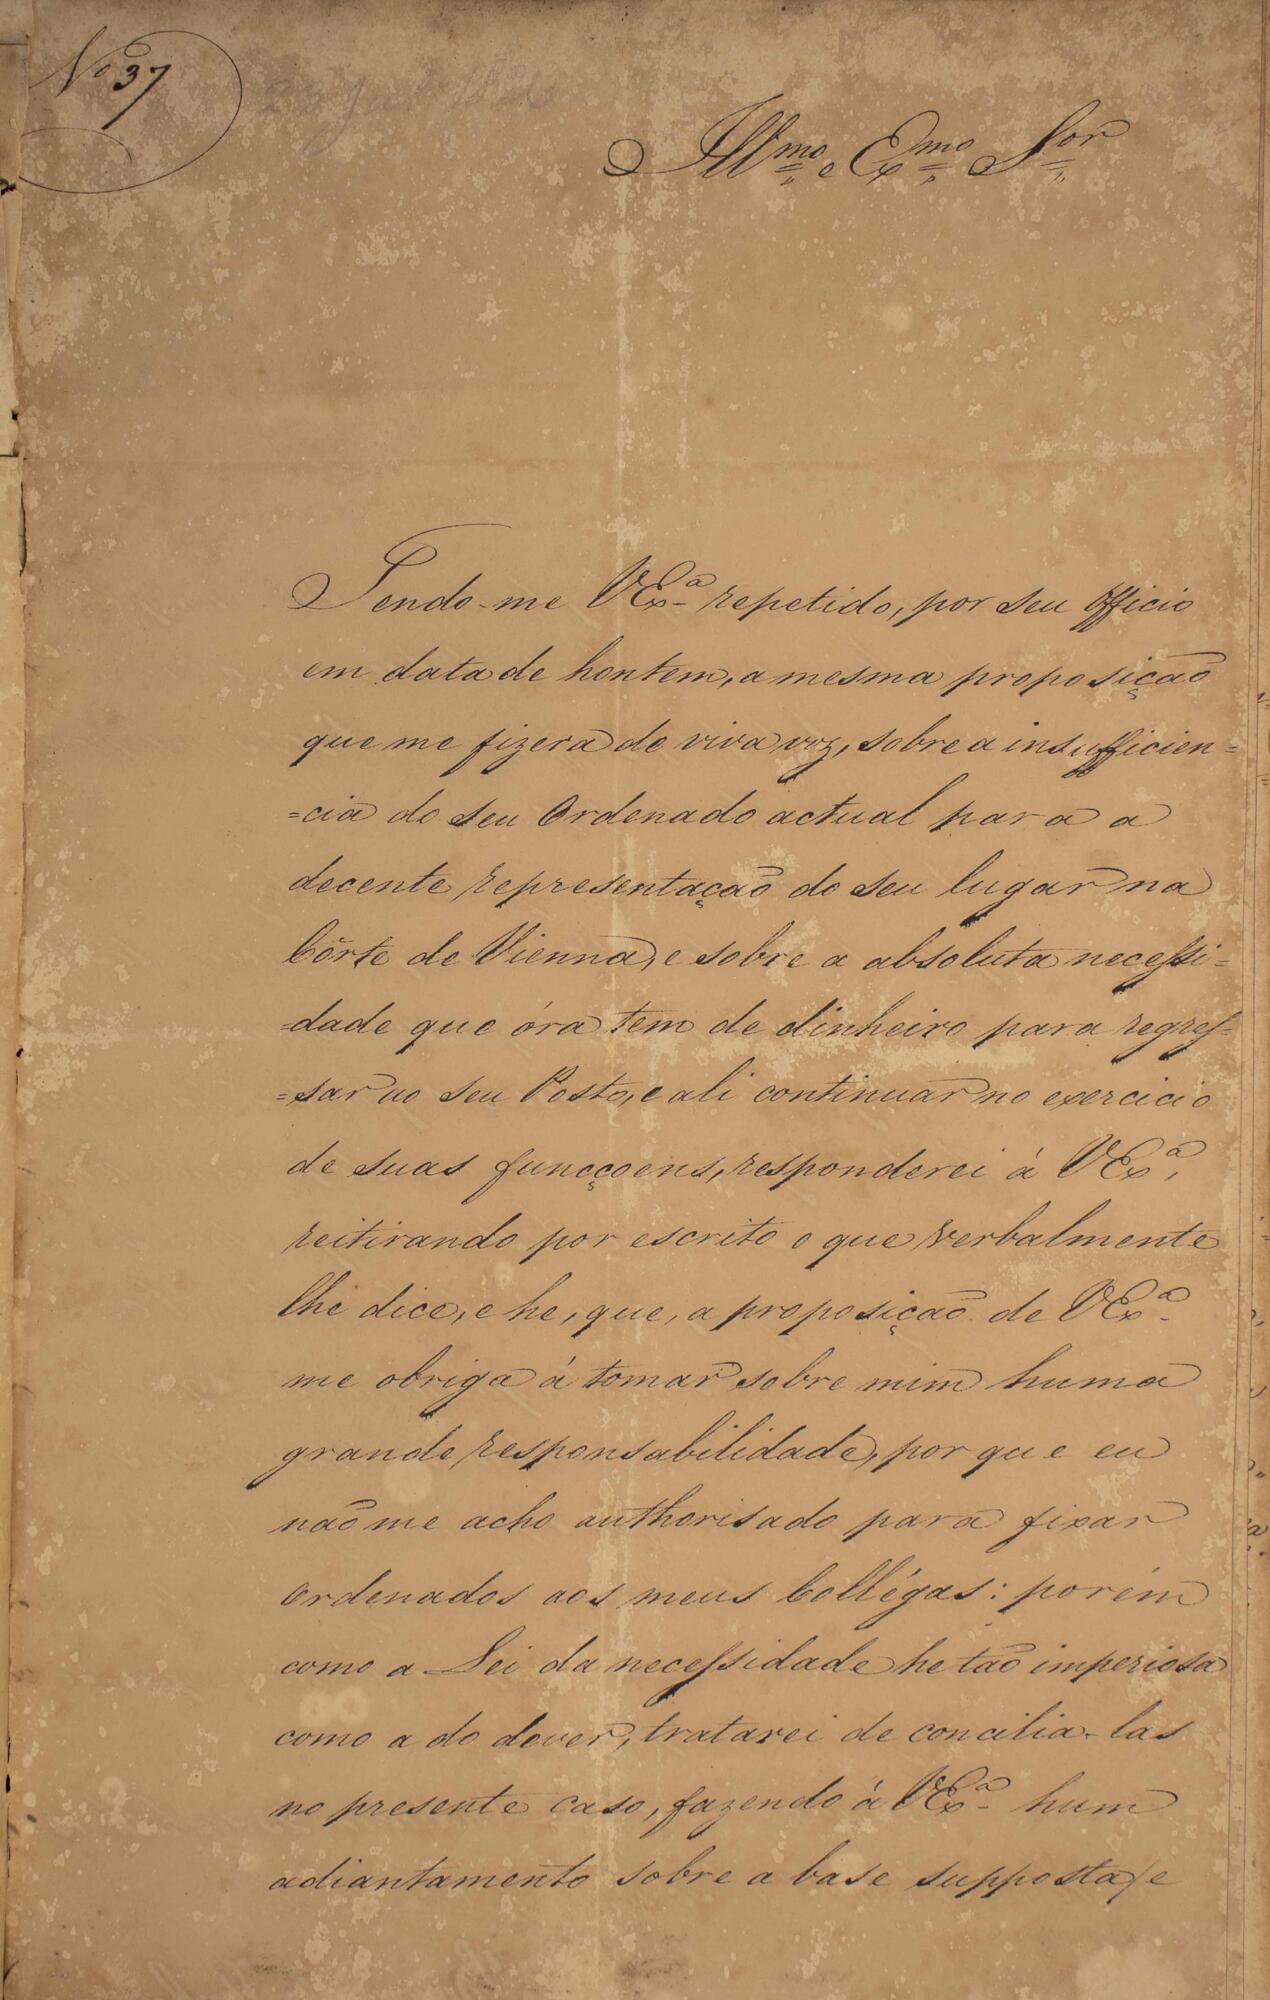 Nº 37
Illmo e Exmo Sor
Tendo-me VExª repetido, por seu Officio
em data de hontem, a mesma proposição
que me fizera de viva voz, sobre a insufficien=
=cia do seu Ordenado actual para a
decente representação do seu lugar na
Côrte de Vienna, e sobre a absoluta necessi=
=dade que óra tem de dinheiro para regres=
=sar ao seu Posto, e ali continuar no exercicio
de suas funcçoens, responderei á VExª,
reitirando por escrito o que verbalmente
lhe dice, e he, que, a proposição de VExª
me obriga á tomar sobre mim huma
grande responsabilidade, por que eu
não me acho authorisado para fixar
Ordenados aos meus Collégas: porém
como a Lei da necessidade he tão imperiosa
como a do dever, tratarei de concilia-las
no presente caso, fazendo á VExª hum
adiantamento sobre a base supposta/e